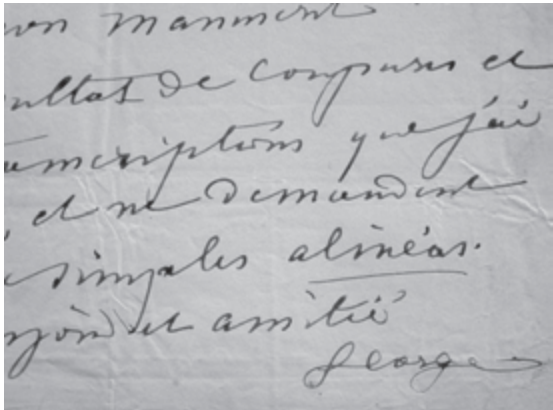 mon manuscrit
sultat de coupures et
anscriptions que j'ai
, et ne demandent
simples alinéas.
et amitié
George